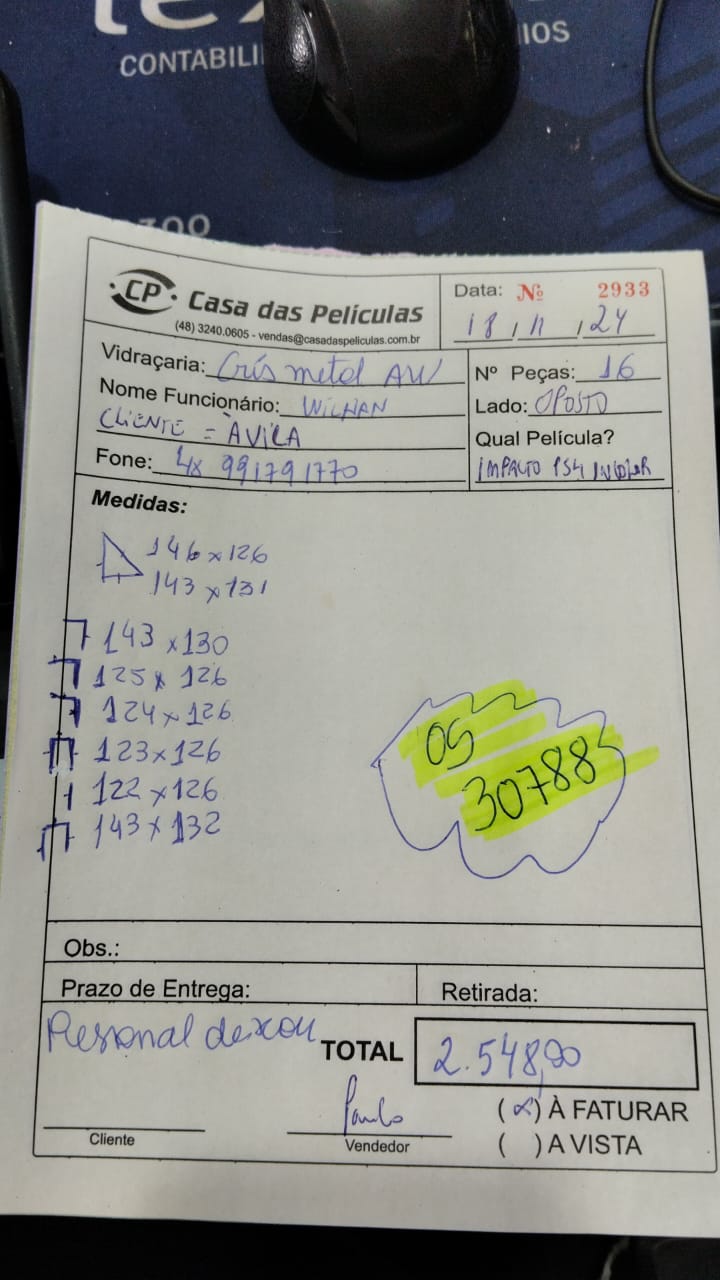 CONTABILI
IOS
CP Casa das Películas
(48) 3240.0605 - vendas@casadaspeliculas.com.br
Data: Nº 2933
18 / 11 / 24
Vidraçaria: Cris metal AW
Nome Funcionário: WILHAN
CLIENTE = ÀVILA
Fone: 48 991791770
Nº Peças: 16
Lado: OPOSTO
Qual Película?
IMPACTO PS4 INCOLOR
Medidas:
146 x 126
143 x 131
143 x 130
125 x 126
124 x 126
123 x 126
122 x 126
143 x 132
OS
30788
Obs.:
Prazo de Entrega:
Retirada:
Pessoal deixou
TOTAL 2.548,00
Paulo
Cliente
Vendedor
(x) À FATURAR
( ) A VISTA